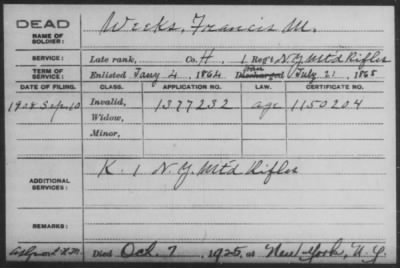 DEAD
NAME OF SOLDIER:
Weeks, Francis M.
SERVICE:
Late rank, Co. H, 1 Reg't N.Y. Mt'd Rifles
TERM OF SERVICE:
Enlisted Jany 4, 1864 Discharged July 21, 1865
DATE OF FILING. CLASS. APPLICATION NO. LAW. CERTIFICATE NO.
1908 Sep. 10 Invalid, 1377232 age 1150204
Widow,
Minor,
ADDITIONAL SERVICES:
K. 1 N.Y. Mt'd Rifles
REMARKS:
Died Oct. 7, 1925, at New York, N.Y.